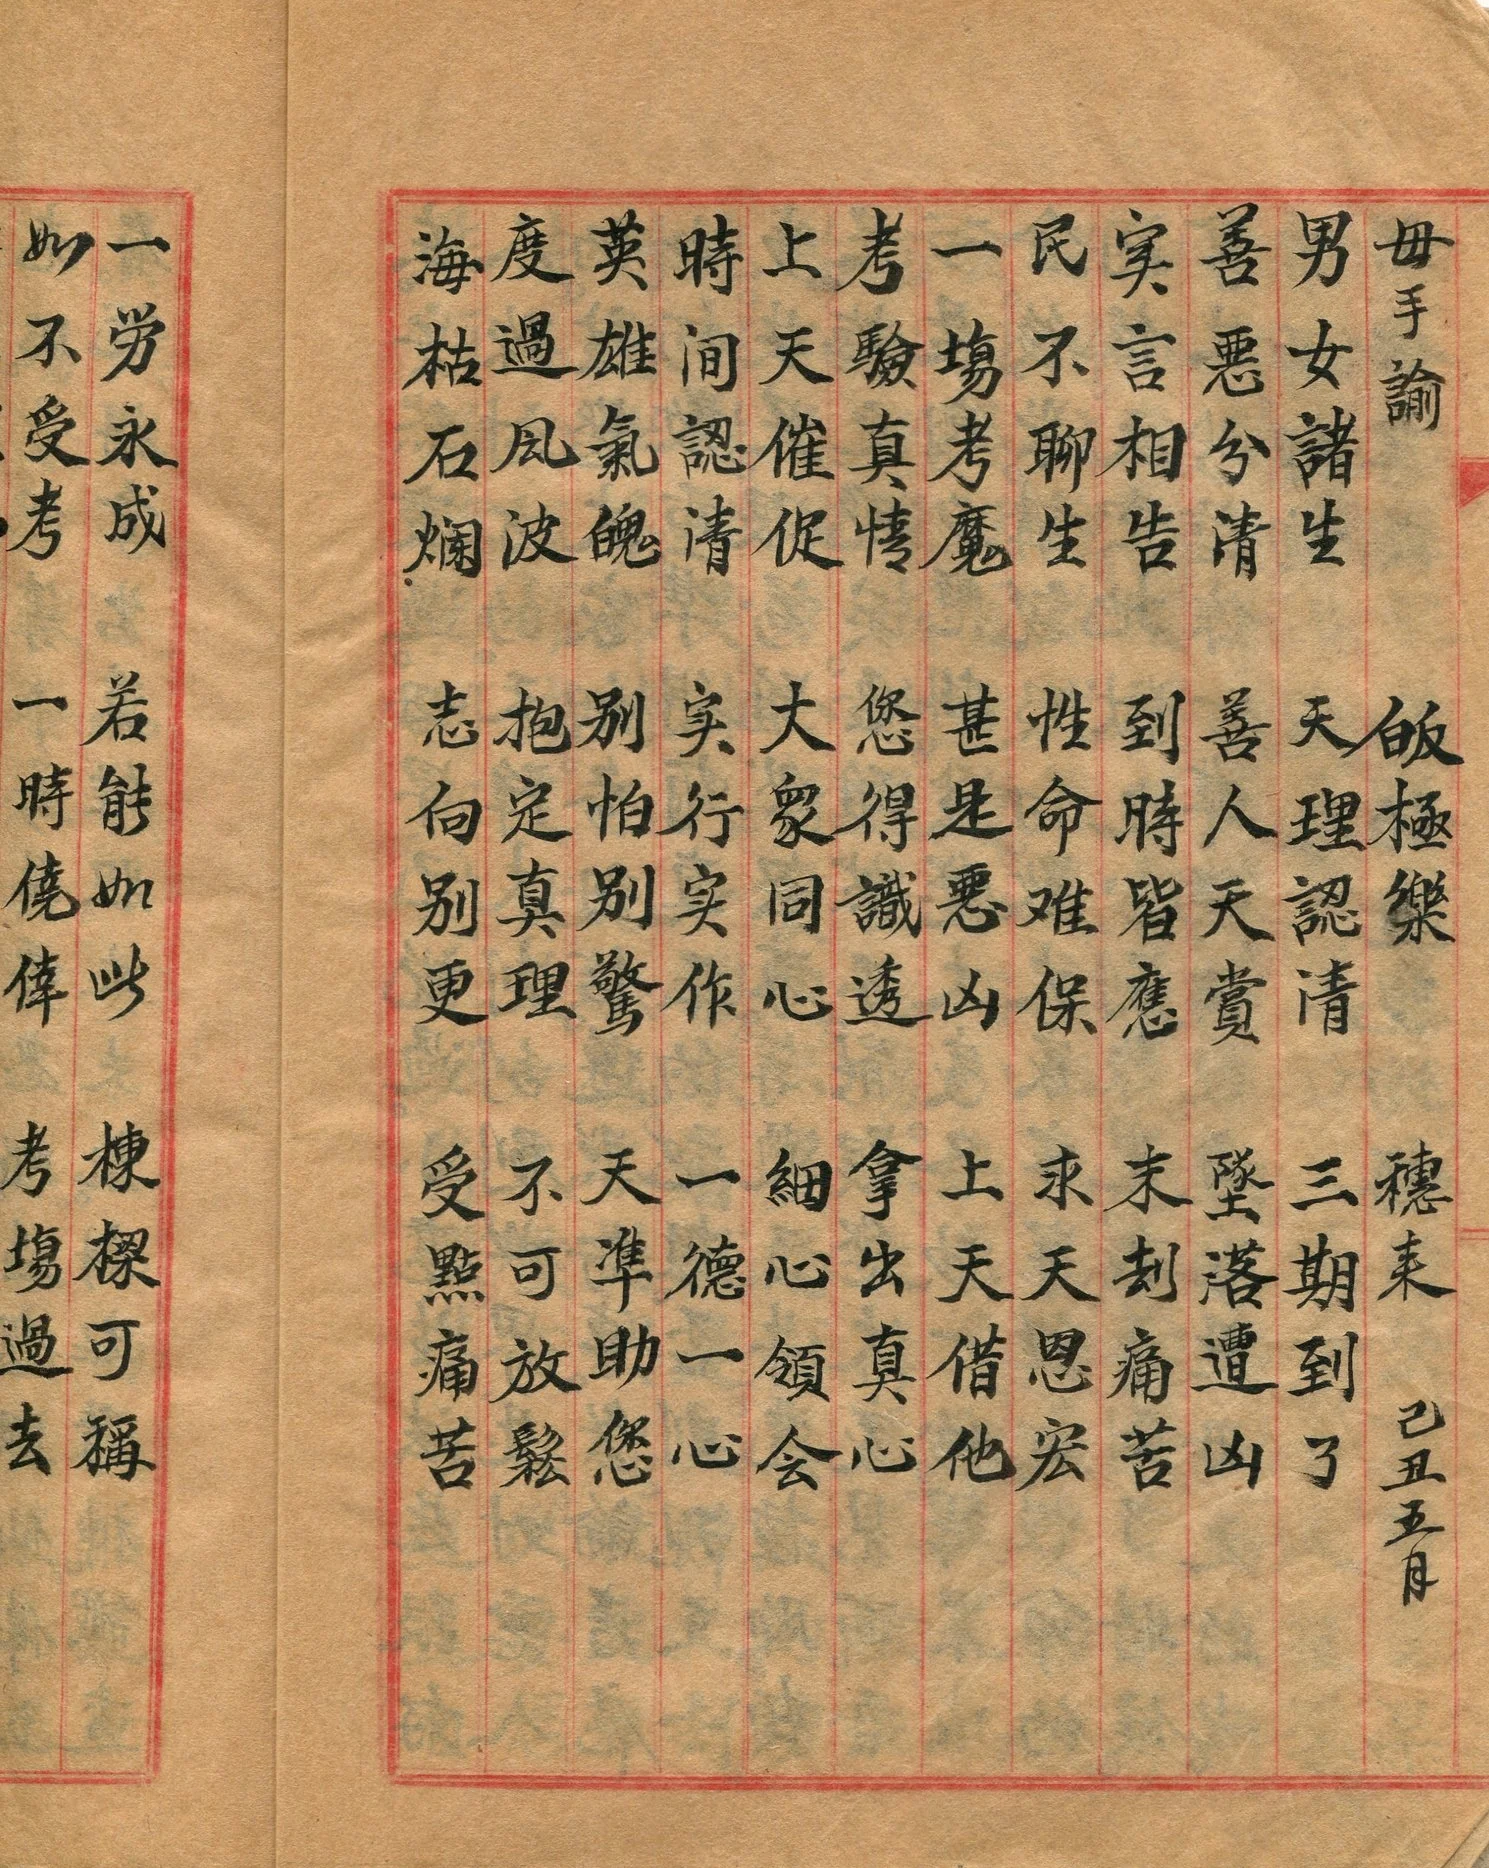 毋手諭 皈極樂 穗来 己丑五月
男女諸生 天理認清 三期到了
善惡分清 善人天賞 墜落遭凶
实言相告 到時皆應 末刼痛苦
民不聊生 性命难保 求天恩宏
一塲考魔 甚是惡凶 上天借他
考驗真情 您得識透 拿出真心
上天催促 大衆同心 細心領会
時间認清 实行实作 一德一心
英雄氣魄 别怕别驚 天凖助您
度過風波 抱定真理 不可放鬆
海枯石爛 志向别更 受點痛苦
一労永成 若能如此 棟樑可稱
如不受考 一時僥倖 考塲過去